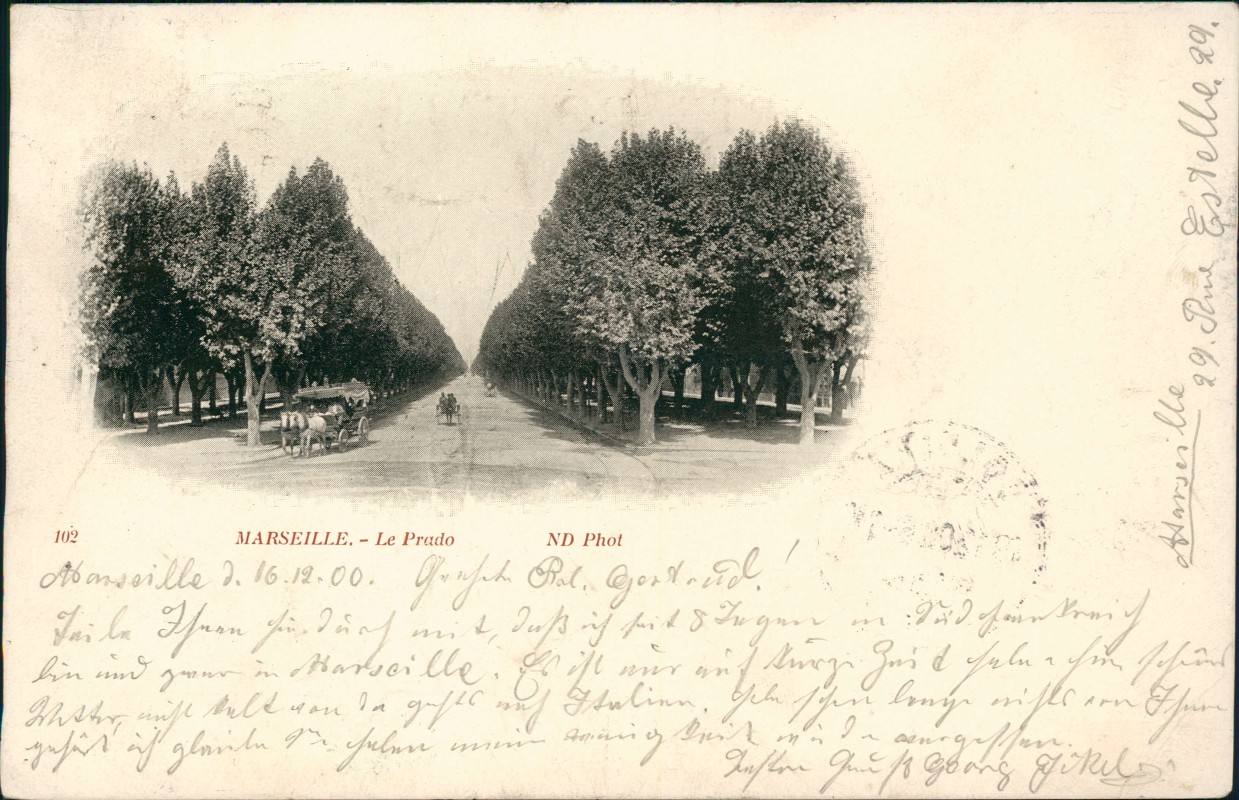 102 MARSEILLE. - Le Prado ND Phot
Marseille d. 16.12.00. Geehrte Frl. Gertrud!
Teile Ihnen hierdurch mit, daß ich seit 8 Tagen in Südfrankreich
bin und zwar in Marseille. Es ist nur auf kurze Zeit habe hier schönes
Wetter, nicht kalt von da gehts nach Italien. Habe schon lange nichts von Ihnen
gehört ich glaube Sie haben mein
vergessen.
Besten Gruß Georg
Marseille
29. Rue Estelle. 29.